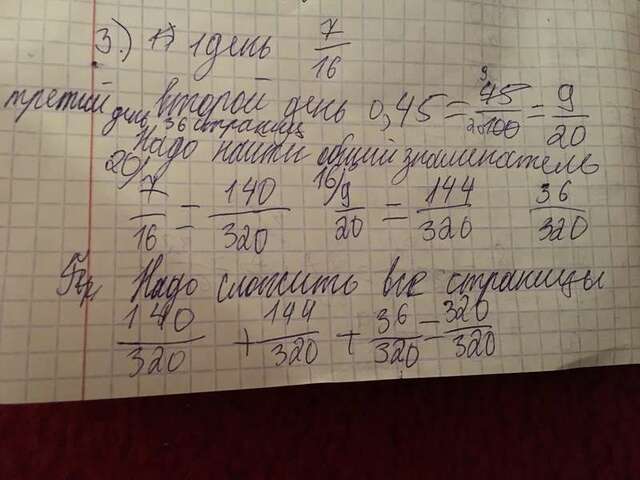 3.) 1) 1 день 7/16
третий день второй день 0,45 = 45/100 = 9/20
36 страниц
Надо найти общий знаменатель
7/16 = 140/320 9/20 = 144/320 36/320
20 16
Надо сложить все страницы
140/320 + 144/320 + 36/320 = 320/320